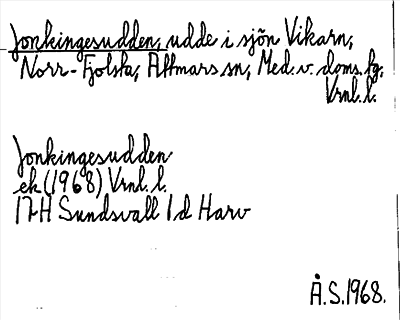 Jonkingesudden, udde i sjön Vikarn,
Norr-Fjolsta, Attmars sn, Med. v. doms. fg.
Vrnl. l.
Jonkingesudden
ek (1968) Vrnl. l.
17H Sundsvall 1d Harv
Å.S. 1968.